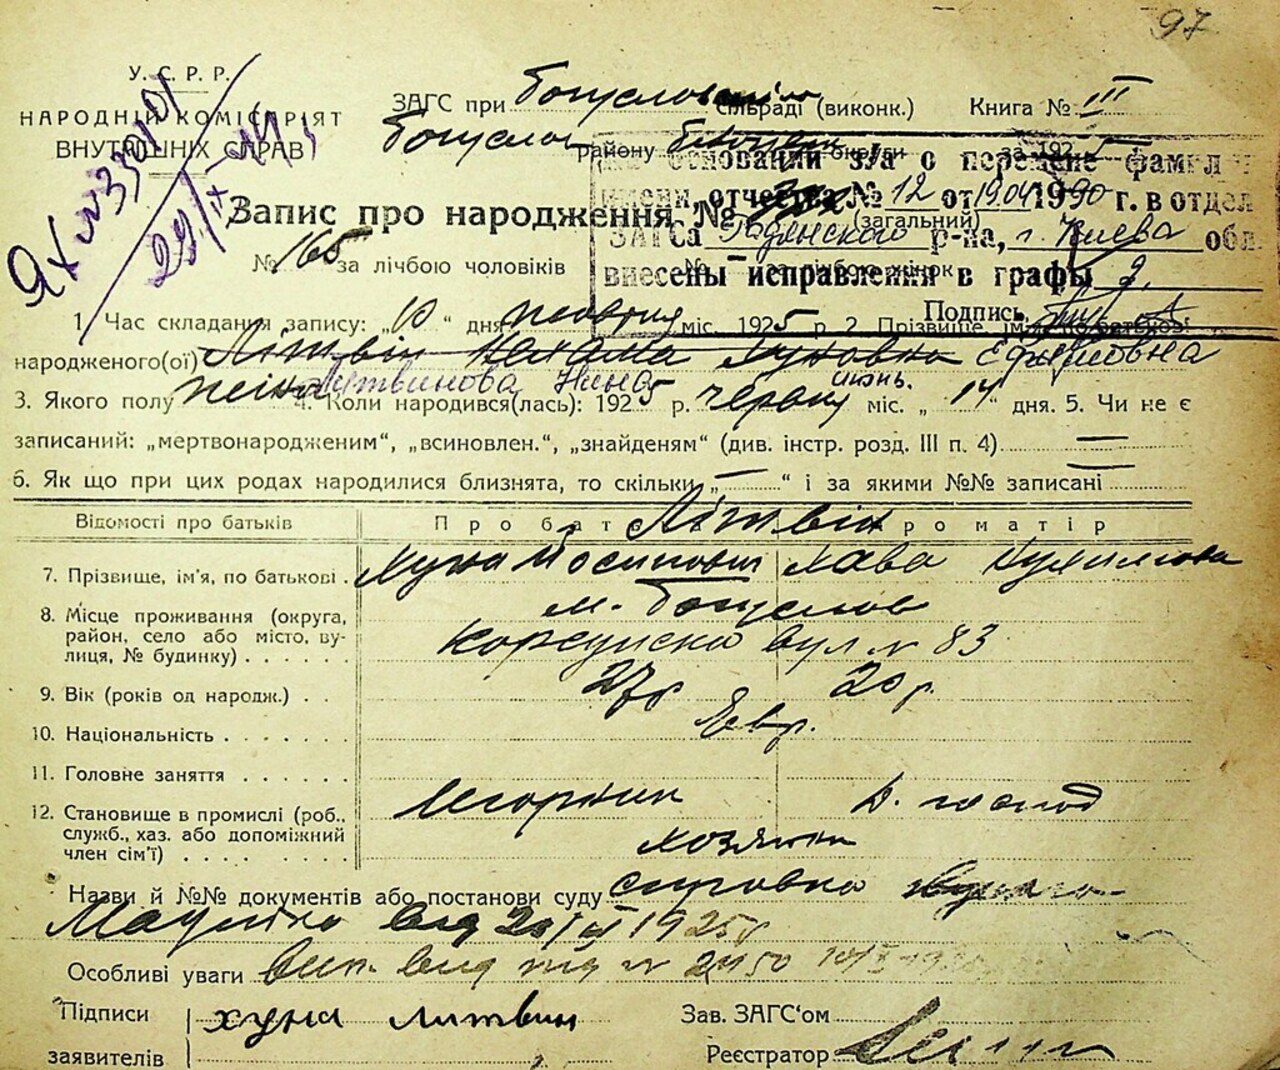 97
У. С. Р. Р.
НАРОДНІЙ КОМІСАРІЯТ
ВНУТРІШНІХ СПРАВ
ЯХ №
ЗАГС при Богуславськім сільраді (виконк.) Книга № III
Богуслав району округи за 1925
На основании з/а о перемене фамил
имени, отчества № 12 от 19.04 1990 г. в отдел
ЗАГСа р-на, г. Киева обл.
внесены исправления в графы 2.
Подпись
Запис про народження №
(загальний)
№ 165 за лічбою чоловіків № за лічбою жінок
1. Час складання запису: „10“ дня жовтня міс. 1925 р. 2. Прізвище, ім'я, по батькові
народженого(ої) Літвін Нехама Хуновна Ефимовна
Литвинова Нина
3. Якого полу жіноча 4. Коли народився(лась): 1925 р. червня июнь. міс. „14“ дня. 5. Чи не є
записаний: „мертвонародженим“, „всиновлен.“, „знайденям“ (див. інстр. розд. III п. 4) —
6. Як що при цих родах народилися близнята, то скільки „—“ і за якими №№ записані —
Відомості про батьків Про бать Про матір
Літвін
7. Прізвище, ім'я, по батькові . Хуна Йосипович Хава
8. Місце проживання (округа,
район, село або місто, ву-
лиця, № будинку) . . . . . .
м. Богуслав
Корсунска вул. № 83
9. Вік (років од народж.) . . 27р 20 р.
10. Національність . . . . . . . Евр.
11. Головне заняття . . . . . .
12. Становище в промислі (роб.,
служб., хаз. або допоміжний
член сім'ї) . . . . . . . .
д. господ
хозяин
Назви й №№ документів або постанови суду
від 1925р
Особливі уваги вип. вид № 2450
Підписи
заявителів
хуна литвин
Зав. ЗАГС'ом
Реєстратор